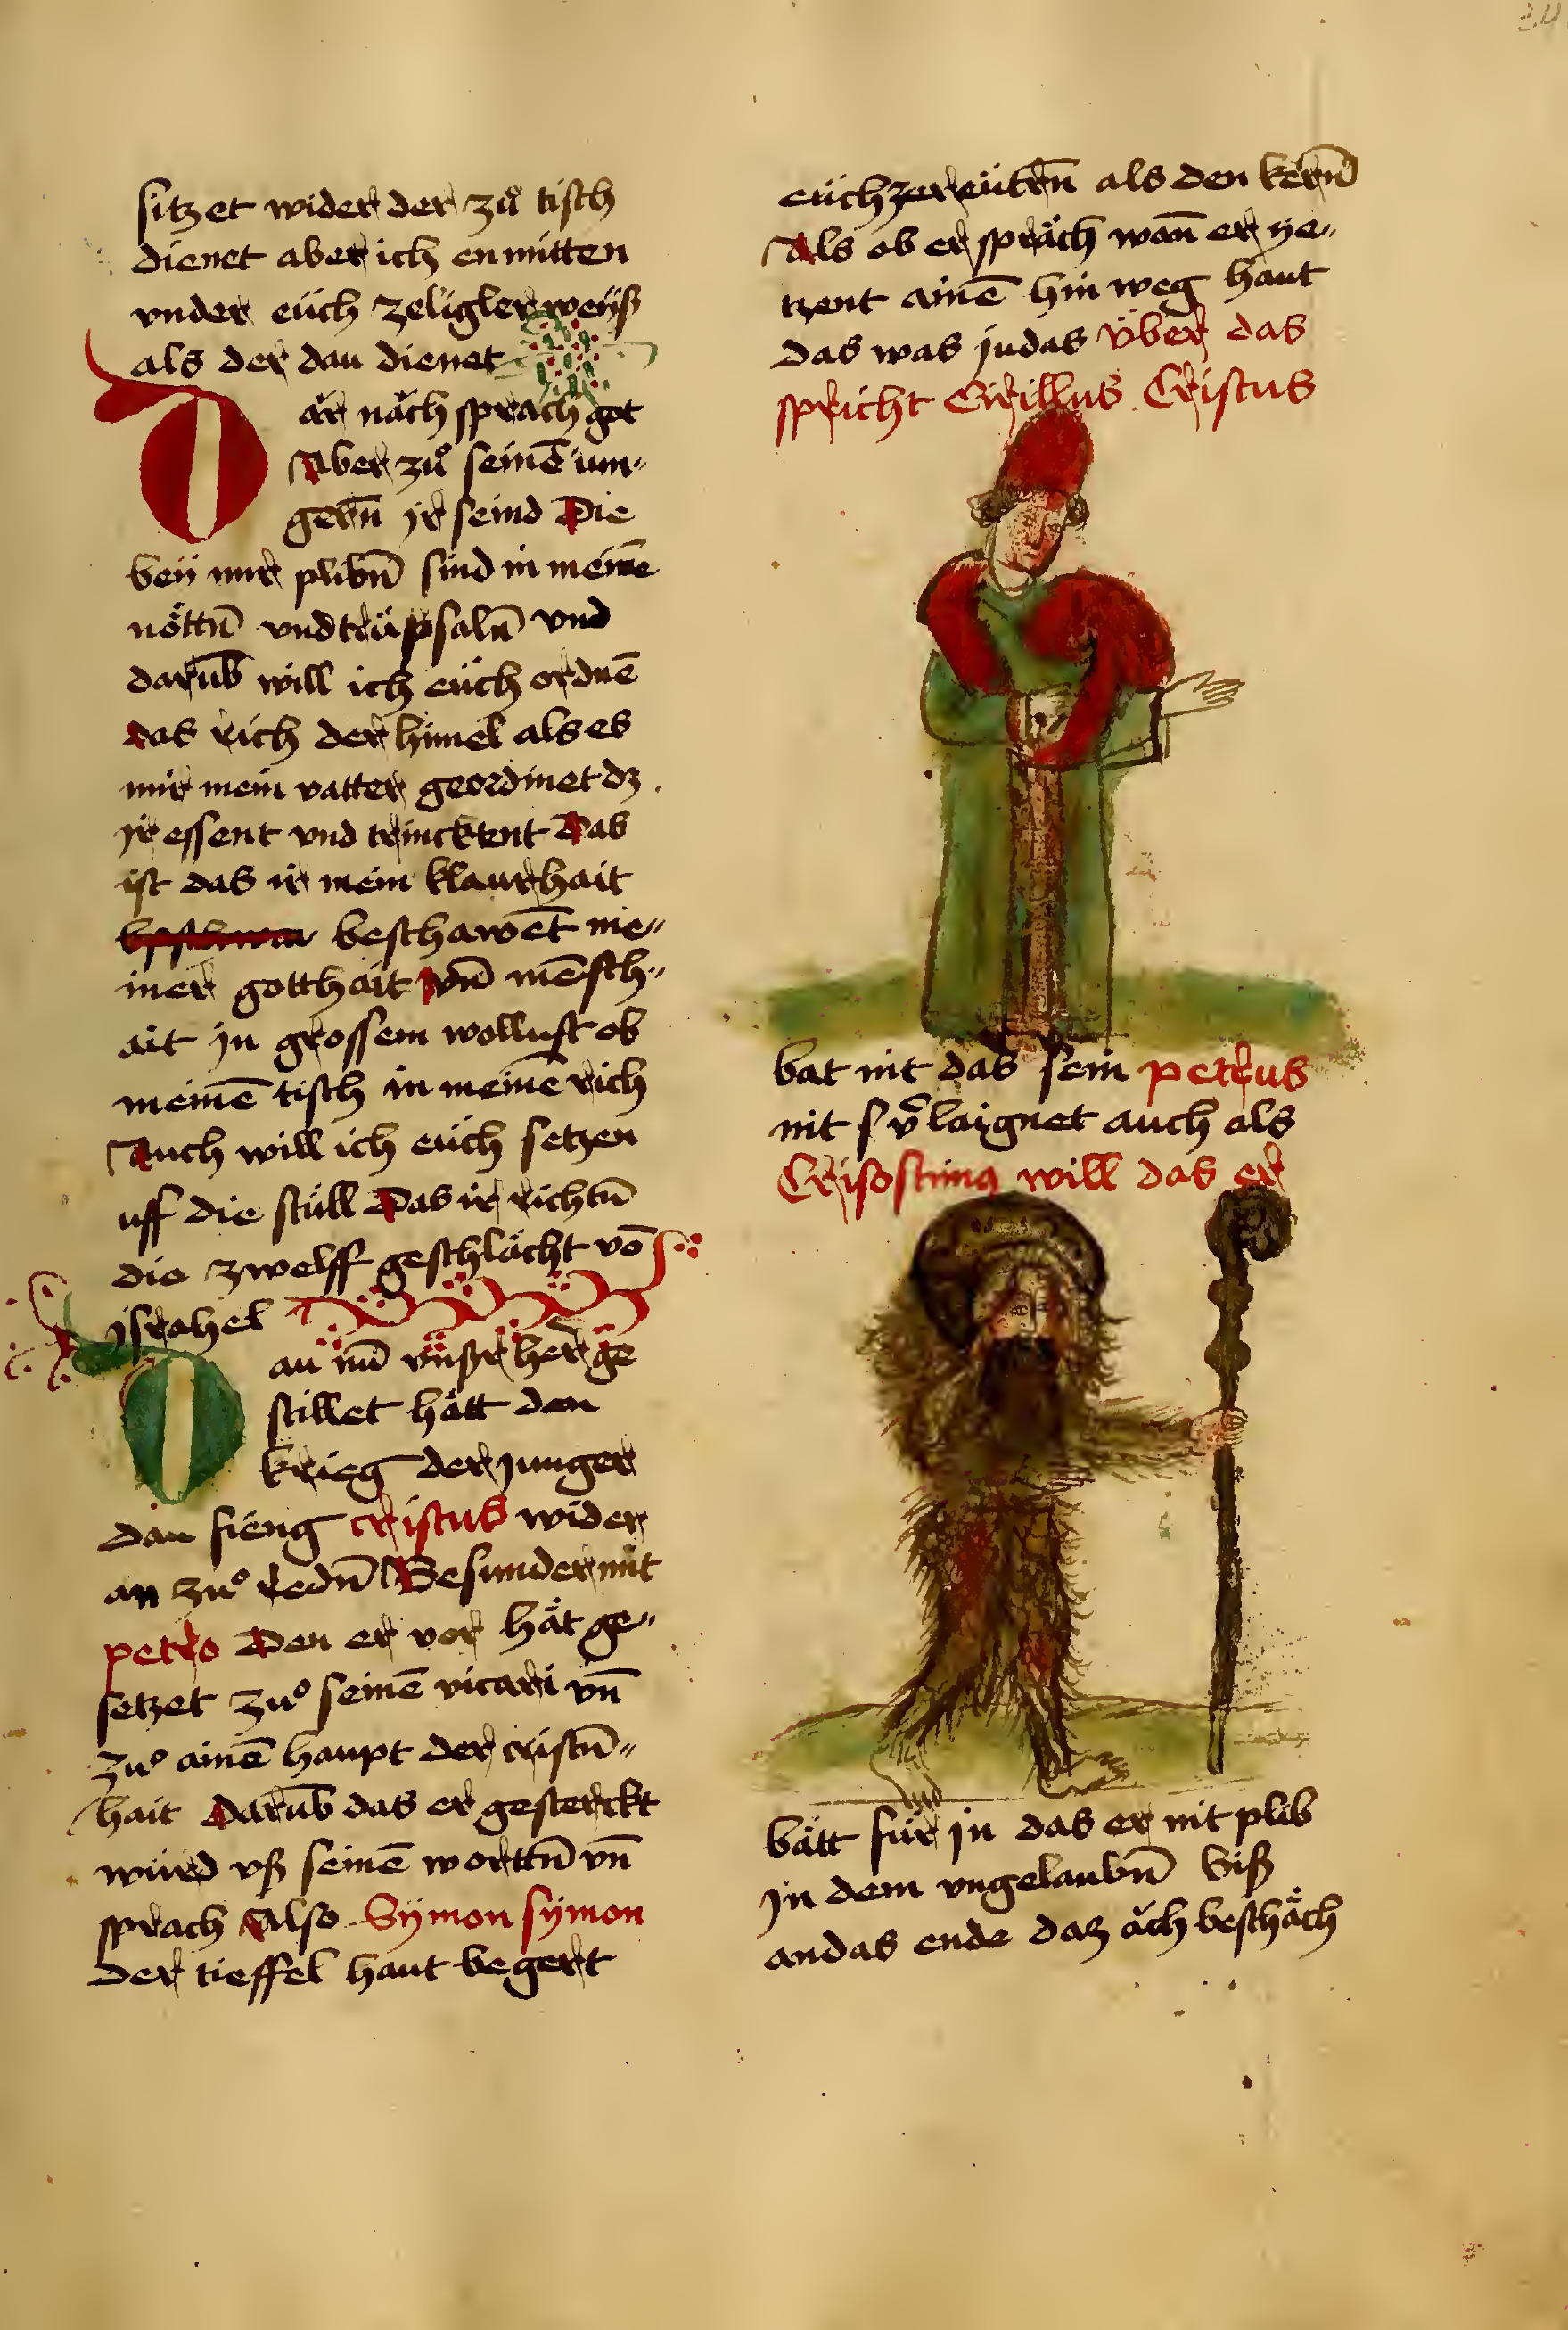 sitzet wider der zů tisch
dienet aber ich enmitten
vnder eüch zeliglerweyß
als der dau dienet
Dar näch sprach got
Aber zů seinē iun„
gern̄ ir seind Die
beÿ mir plibn̄ sind in meinē
nöttn̄ vnd trüpsaln̄ vnd
darūb will ich eüch ordnē
das rich der himel als es
mir mein vatter geordinet dz
ir essent vnd trincktent Das
ist das ir mein klaurhait
beschawēt me„
iner gotthait vn̄ mēsch„
ait jn grossem wollust ob
meinē tisch in meinē rich
Auch will ich eüch setzen
uff die stüll Das ir richtn̄
die zwelff geschlächt vō
jsrahel
Dau nū vnßr her ge
stillet hätt den
krieg der junger
dau fieng cristus wider
an zů redn̄ Besunder mit
petro Den er vor hät ge„
setzet zů seinē vicari vn̄
zů ainē haupt der cristn̄„
hait Darūb das er gesterckt
würd vß seinē worttn̄ vn̄
sprach Also Sÿmon sÿmon
der tieffel haut begert
eüch zereütrn̄ als den kern̄
Als ob er spräch wan̄ er ye„
tzent ainē hin weg haut
das was judas Über das
spricht Cirillus Cristus
bat nit das sein petrus
nit v̄laignet auch als
Crisostimꝰ will das er
bätt für jn das er nit plib
jn dem vngelaubn̄ biß
an das ende daz äch beschäch